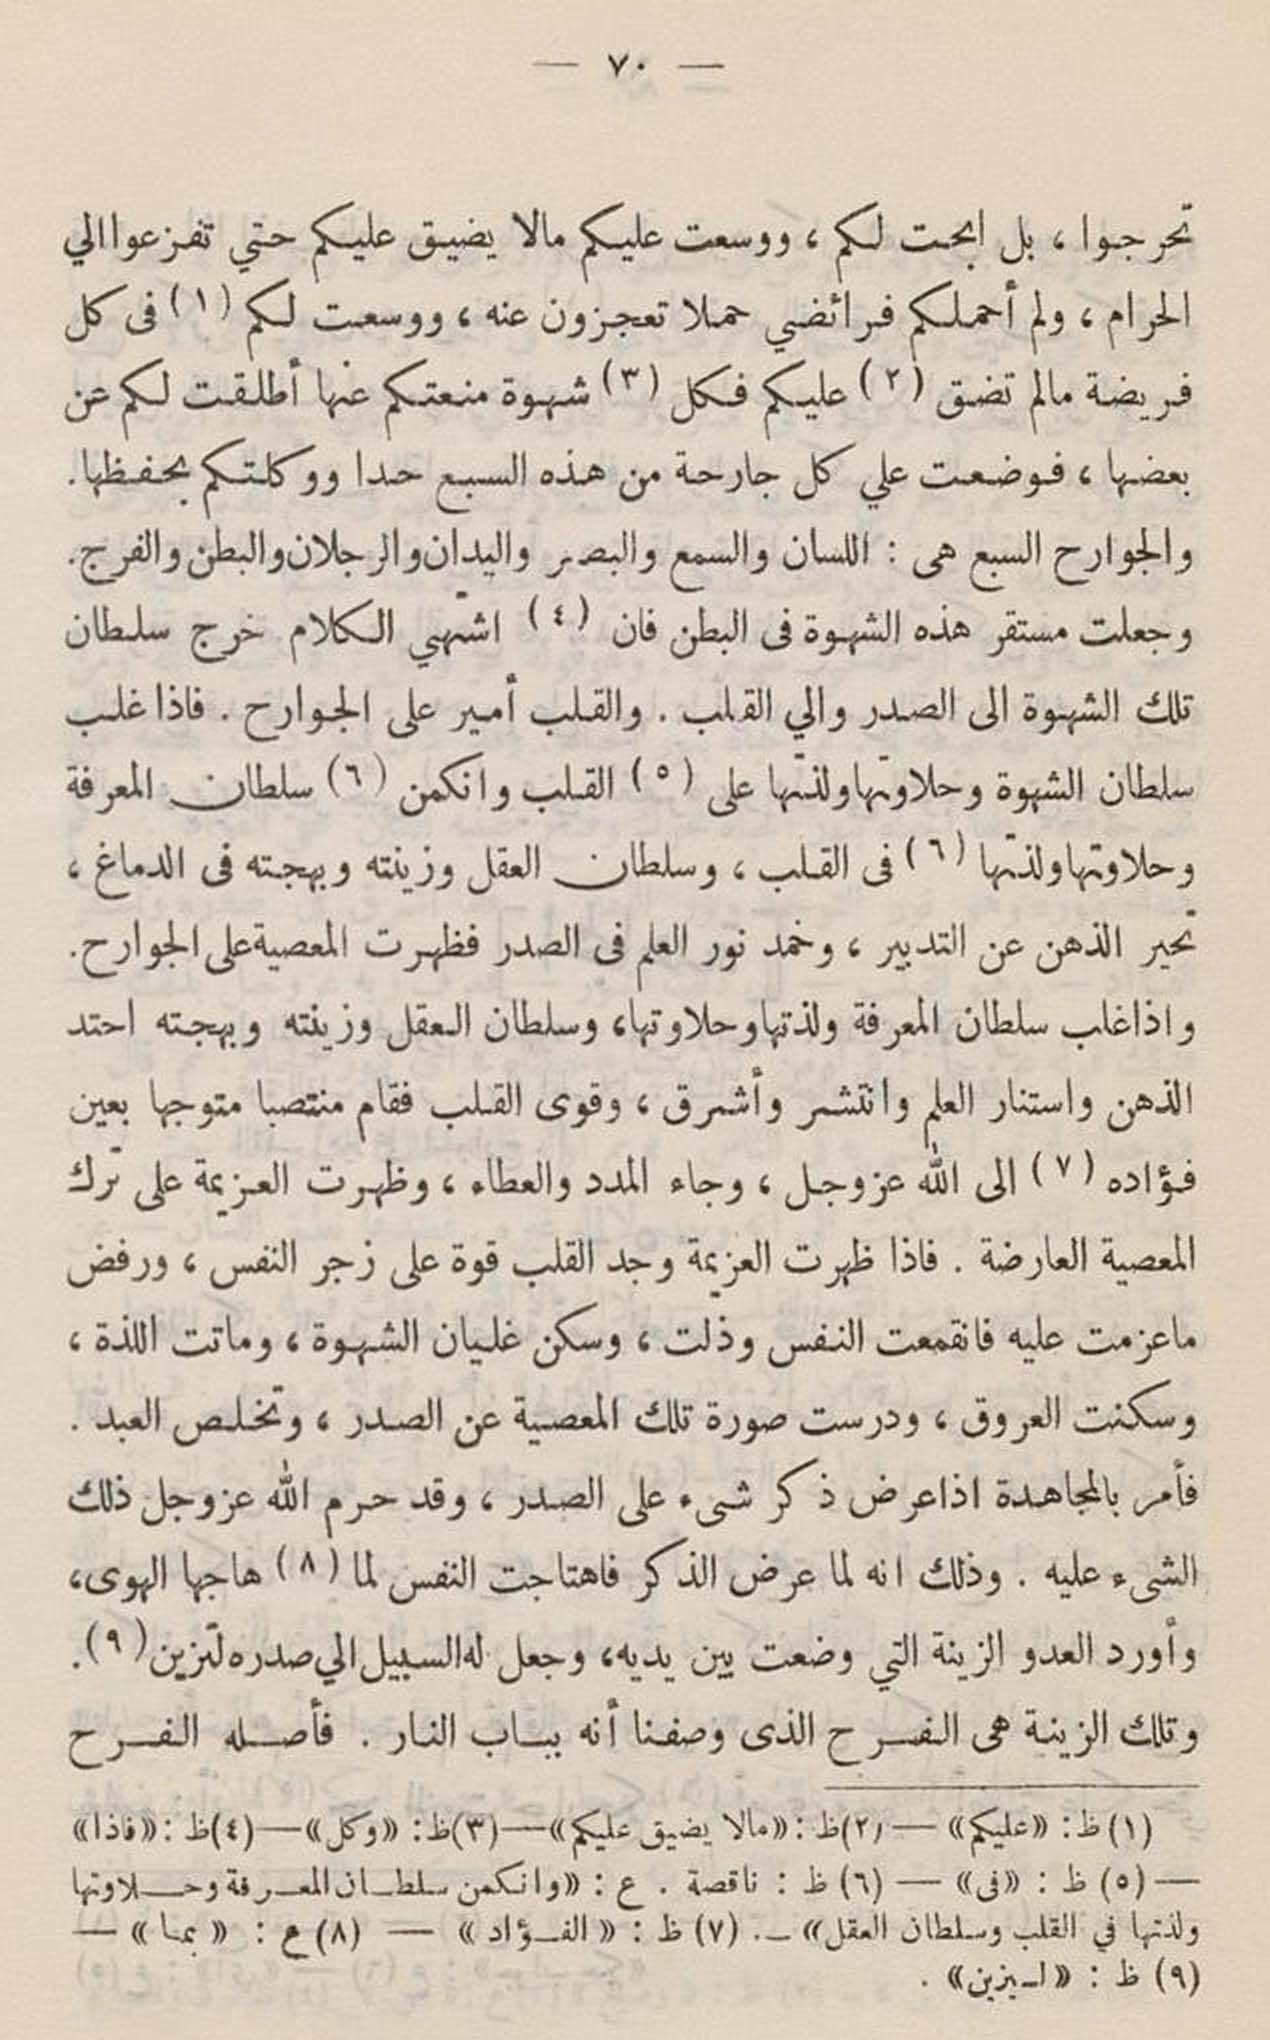 — ٧٠ —
تحرجوا ، بل ابحت لكم ، ووسعت عليكم مالا يضيق عليكم حتي تفزعوا الي
الحرام ، ولم أحملكم فرائضي حملا تعجزون عنه ، ووسعت لكم (١) فى كل
فريضة مالم تضق (٢) عليكم فكل (٣) شهوة منعتكم عنها أطلقت لكم عن
بعضها ، فوضعت علي كل جارحة من هذه السبع حدا ووكلتكم بحفظها.
والجوارح السبع هى : اللسان والسمع والبصر واليدان والرجلان والبطن والفرج.
وجعلت مستقر هذه الشهوة فى البطن فان (٤) اشتهي الكلام خرج سلطان
تلك الشهوة الى الصدر والي القلب . والقلب أمير على الجوارح . فاذا غلب
سلطان الشهوة وحلاوتها ولذتها على (٥) القلب وانكمن (٦) سلطان المعرفة
وحلاوتها ولذتها (٦) فى القلب ، وسلطان العقل وزينته وبهجته فى الدماغ ،
تحير الذهن عن التدبير ، وخمد نور العلم فى الصدر فظهرت المعصية على الجوارح.
واذا غلب سلطان المعرفة ولذتها وحلاوتها، وسلطان العقل وزينته وبهجته احتد
الذهن واستنار العلم وانتشر وأشرق ، وقوى القلب فقام منتصبا متوجها بعين
فؤاده (٧) الى الله عز وجل ، وجاء المدد والعطاء ، وظهرت العزيمة على ترك
المعصية العارضة . فاذا ظهرت العزيمة وجد القلب قوة على زجر النفس ، ورفض
ماعزمت عليه فانقمعت النفس وذلت ، وسكن غليان الشهوة ، وماتت اللذة ،
وسكنت العروق ، ودرست صورة تلك المعصية عن الصدر ، وتخلص العبد .
فأمر بالمجاهدة اذا عرض ذكر شىء على الصدر ، وقد حرم الله عز وجل ذلك
الشىء عليه . وذلك انه لما عرض الذكر فاهتاجت النفس لما (٨) هاجها الهوى،
وأورد العدو الزينة التي وضعت بين يديه، وجعل له السبيل الي صدره لتزين (٩).
وتلك الزينة هى الفرح الذى وصفنا أنه بباب النار . فأصله الفرح
(١) ظ: «عليكم» — (٢) ظ: «مالا يضيق عليكم» — (٣) ظ: «وكل» — (٤) ظ: «فاذا»
— (٥) ظ : «فى» — (٦) ظ : ناقصة . ع : «وانكمن سلطان المعرفة وحلاوتها
ولذتها في القلب وسلطان العقل» —. (٧) ظ : «الفؤاد» — (٨) ع : «بما» —
(٩) ظ : «ليزين» .